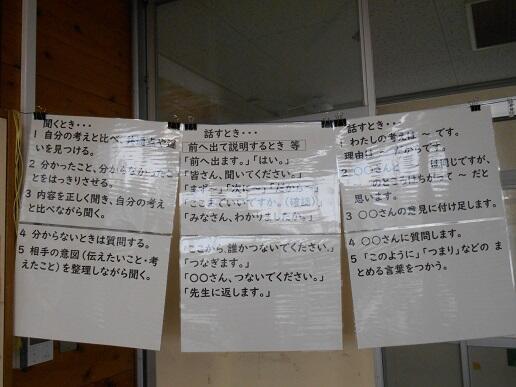 聞くとき・・・
1 自分の考えと比べ、 違い
いを見つける。
2 分かったこと、分からなかったこ
とをはっきりさせる。
3 内容を正しく聞き、自分の考え
と比べながら聞く。
4 分からないときは質問する。
5 相手の意図（伝えたいこと・考
えたこと）を整理しながら聞く。
話すとき・・・
前へ出て説明するとき 等
「前へ出ます。」「はい。」
「皆さん、聞いてください。」
「まず～」「次に～」「だから～」
「ここまでいいですか。（確認）」
「みなさん、わかりましたか。」
「ここから 誰かつないでください。」
「つなぎます。」
「〇〇さん、つないでください。」
「先生に返します。」
話すとき・・・
1 わたしの考えは ～ です。
理由は からです。
2 〇〇さんと は同じですが、
のところがちがって ～ だと
思います。
3 〇〇さんの意見に付け足します。
4 〇〇さんに質問します。
5 「このように」「つまり」などの ま
とめる言葉をつかう。